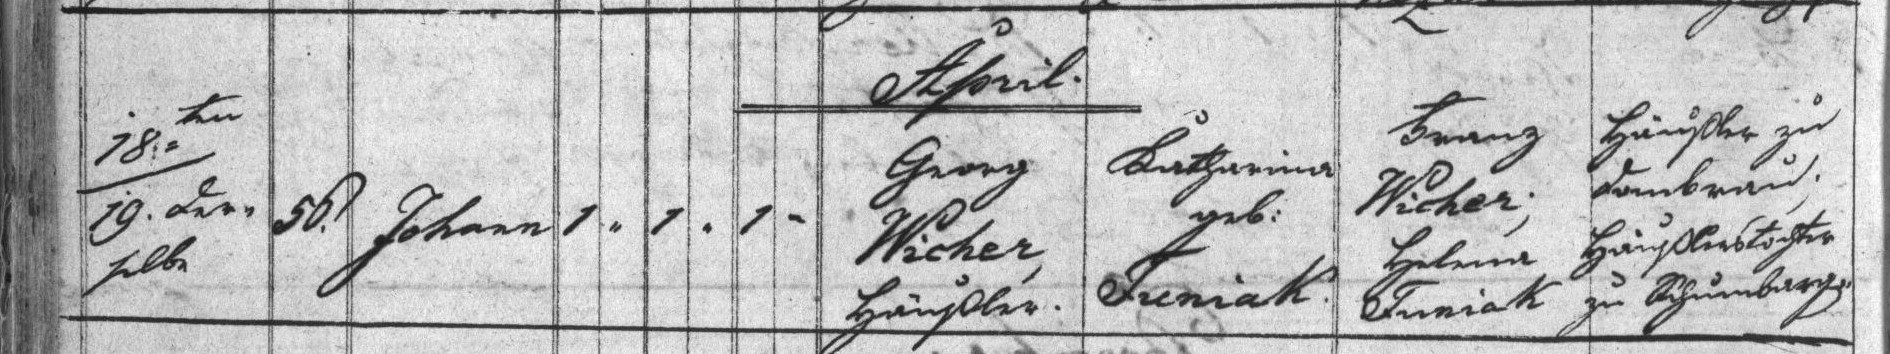 April.
18.= ten
19. der-
selbe
56.
Johann
1 " 1 " 1 "
Georg
Wicher,
Häußler.
Katharina
geb:
Funiak.
Franz
Wicher,
Helena
Funiak
Häußler zu
Dombrau,
Häußlerstochter
zu Schumbarg.